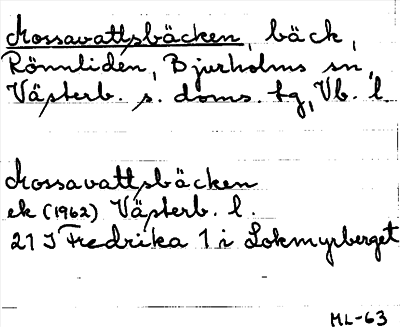 Mossavattsbäcken, bäck,
Rönnliden, Bjurholms sn,
Västerb. s. doms. tg, Vb. l.
Mossavattsbäcken
ek (1962) Västerb. l.
21 J Fredrika 1 i Lokmyrberget
ML-63